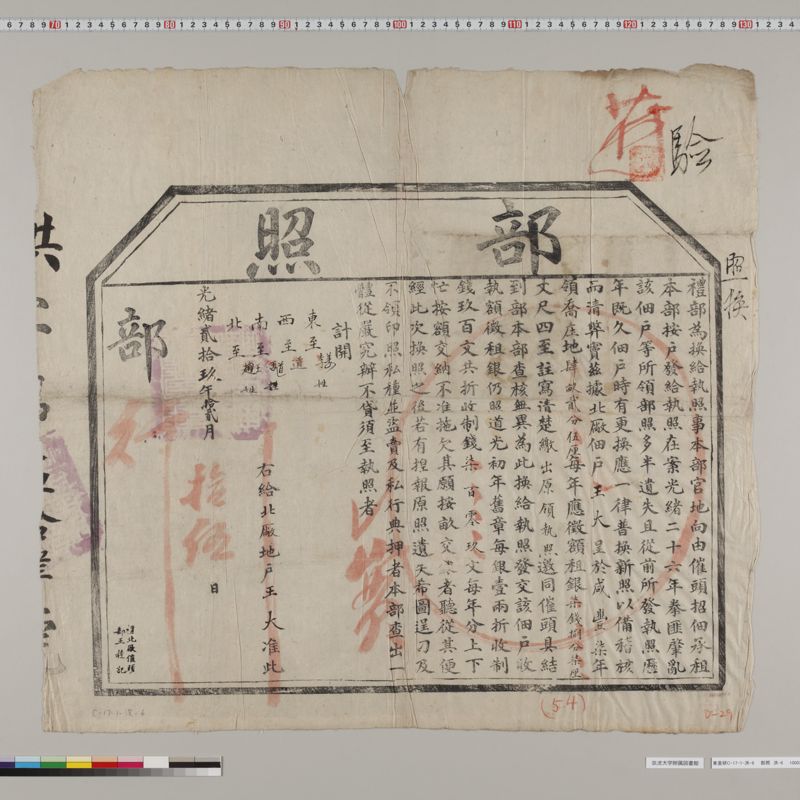 驗
照換
部照
禮部為換給執照事本部官地向由催頭招佃承租
本部按戶發給執照在案光緒二十六年拳匪肇亂
該佃戶等所領部照多半遺失且從前所發執照歷
年既久佃戶時有更換應一律普換新照以備稽核
而清弊竇茲據北廠佃戶王大呈於咸豐柒年
領喬庄地肆畝貳分伍厘每年應徵額租銀柒錢捌分柒厘
丈尺四至註寫清楚繳出原領執照邀同催頭具結
到部本部查核無異為此換給執照發交該佃戶收
執額徵租銀仍照道光初年舊章每銀壹兩折收制
錢玖百文共折收制錢柒百零玖文每年分上下
忙按額交納不准拖欠其願按畝交者聽從其便
經此次換照之後若有捏報原照遺失希圖逞刁及
不領印照私種並盜賣及私行典押者本部查出一
體從嚴究辦不貸須至執照者
計開
東至姓
西至道
南至姓
北至趙姓
右給北廠地戶王大准此
光緒貳拾玖年拾貳月拾伍日
部
(54)
D-29
筑波大学附属図書館